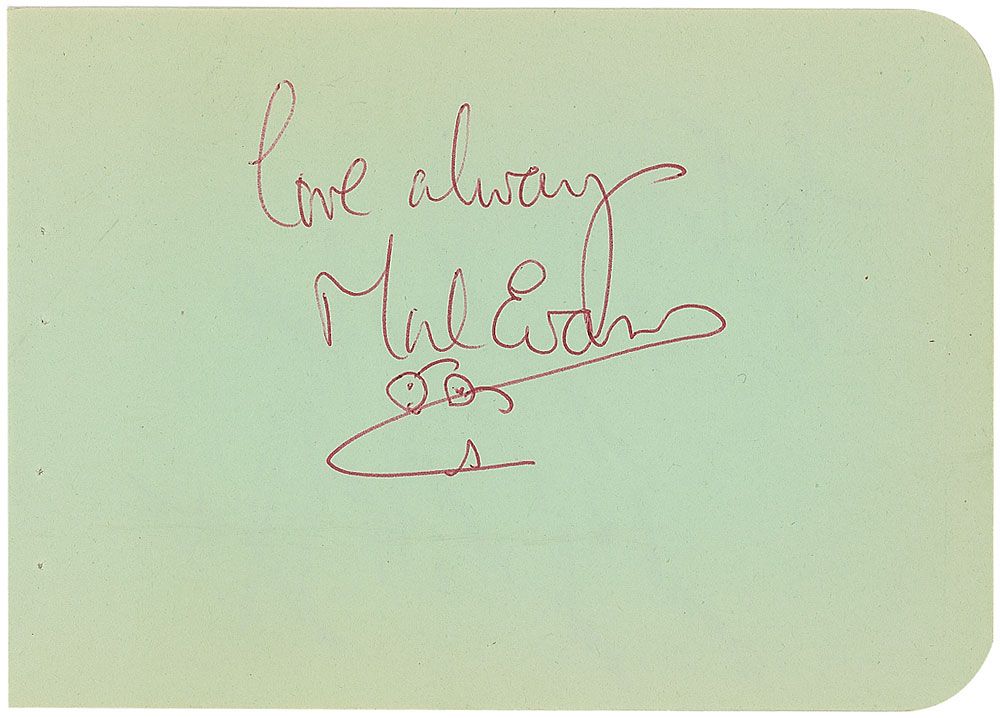 love always
Mal Evans